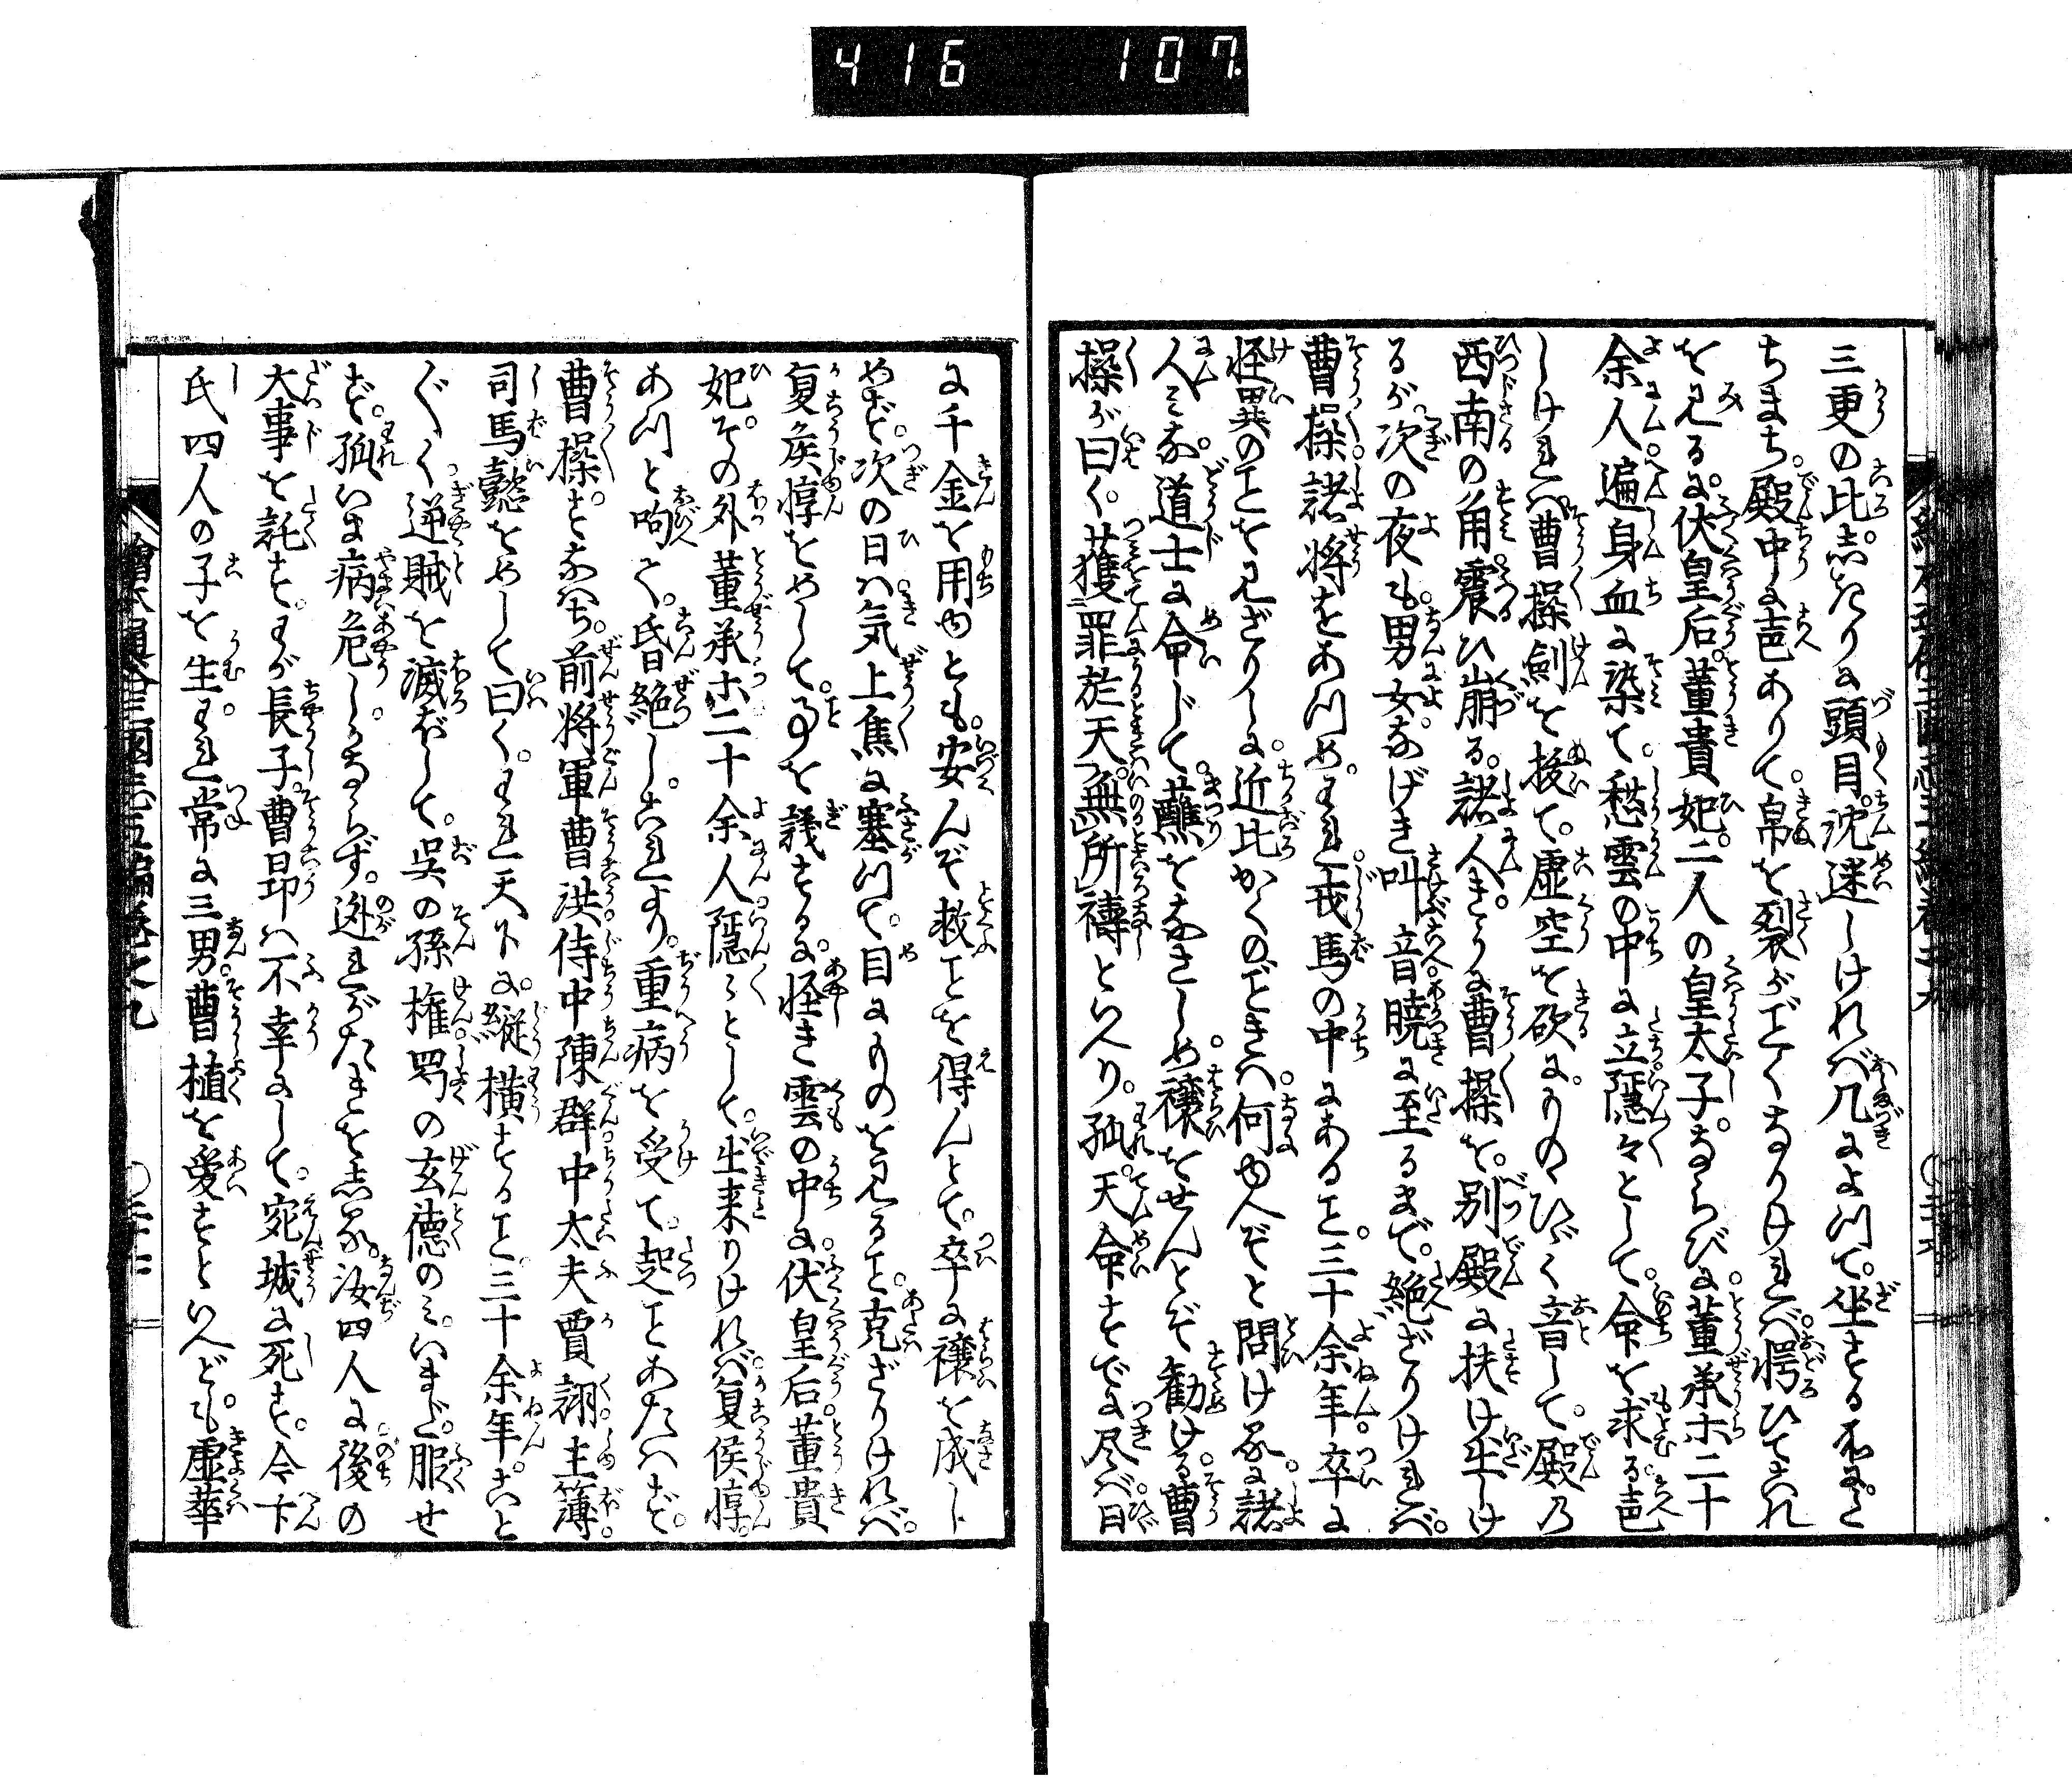 416 107
三更の比しきりに頭目沈迷しければ几によつて坐するに
ちまち殿中に声ありて帛を裂がごとくなりければ愕ひてこれ
を見るに伏皇后董貴妃二人の皇太子ならびに董承ホ二十
余人遍身血に染て愁雲の中に立隠々として命を求る声
しければ曹操剣を抜て虚空を砍にものゝひゞく音して殿乃
西南の角震ひ崩る諸人きうに曹操を別殿に扶け出しけ
るが次の夜も男女なげき叫音暁に至るまで絶ざりければ
曹操諸将をあつめわれ戎馬の中にあること三十余年卒に
怪異のことを見ざりしに近比かくのごときハ何ゆへぞと問ける に諸
人ミな道士に命じて醮をなさしめ禳をせんとぞ勧ける曹
操が曰く獲罪於天無所禱といへり孤天命すでに尽バ日
に千金を用ゆとも安んぞ救ことを得んとて卒に禳を成し
めず次の日ハ気上焦に塞つて目にものを見ること克ざりければ
夏侯惇をめして事を議するに怪き雲の中に伏皇后董貴
妃その外董承ホ二十余人隠々として出来りければ夏侯惇
あつと呴て昏絶しこれより重病を受て起ことあたハず
曹操すなハち前将軍曹洪侍中陳群中太夫賈詡主簿
司馬懿をめして曰くわれ天下に縦横すること三十余年こと
ぐく逆賊を滅ぼして呉の孫権蜀の玄徳のミいまだ服せ
ず孤いま病危しかならず遁れがたきを知る汝四人に後の
大事を託すわが長子曹昂ハ不幸にして宛城に死す今卞
氏四人の子を生むわれ常に三男曹植を愛すといへども虚華